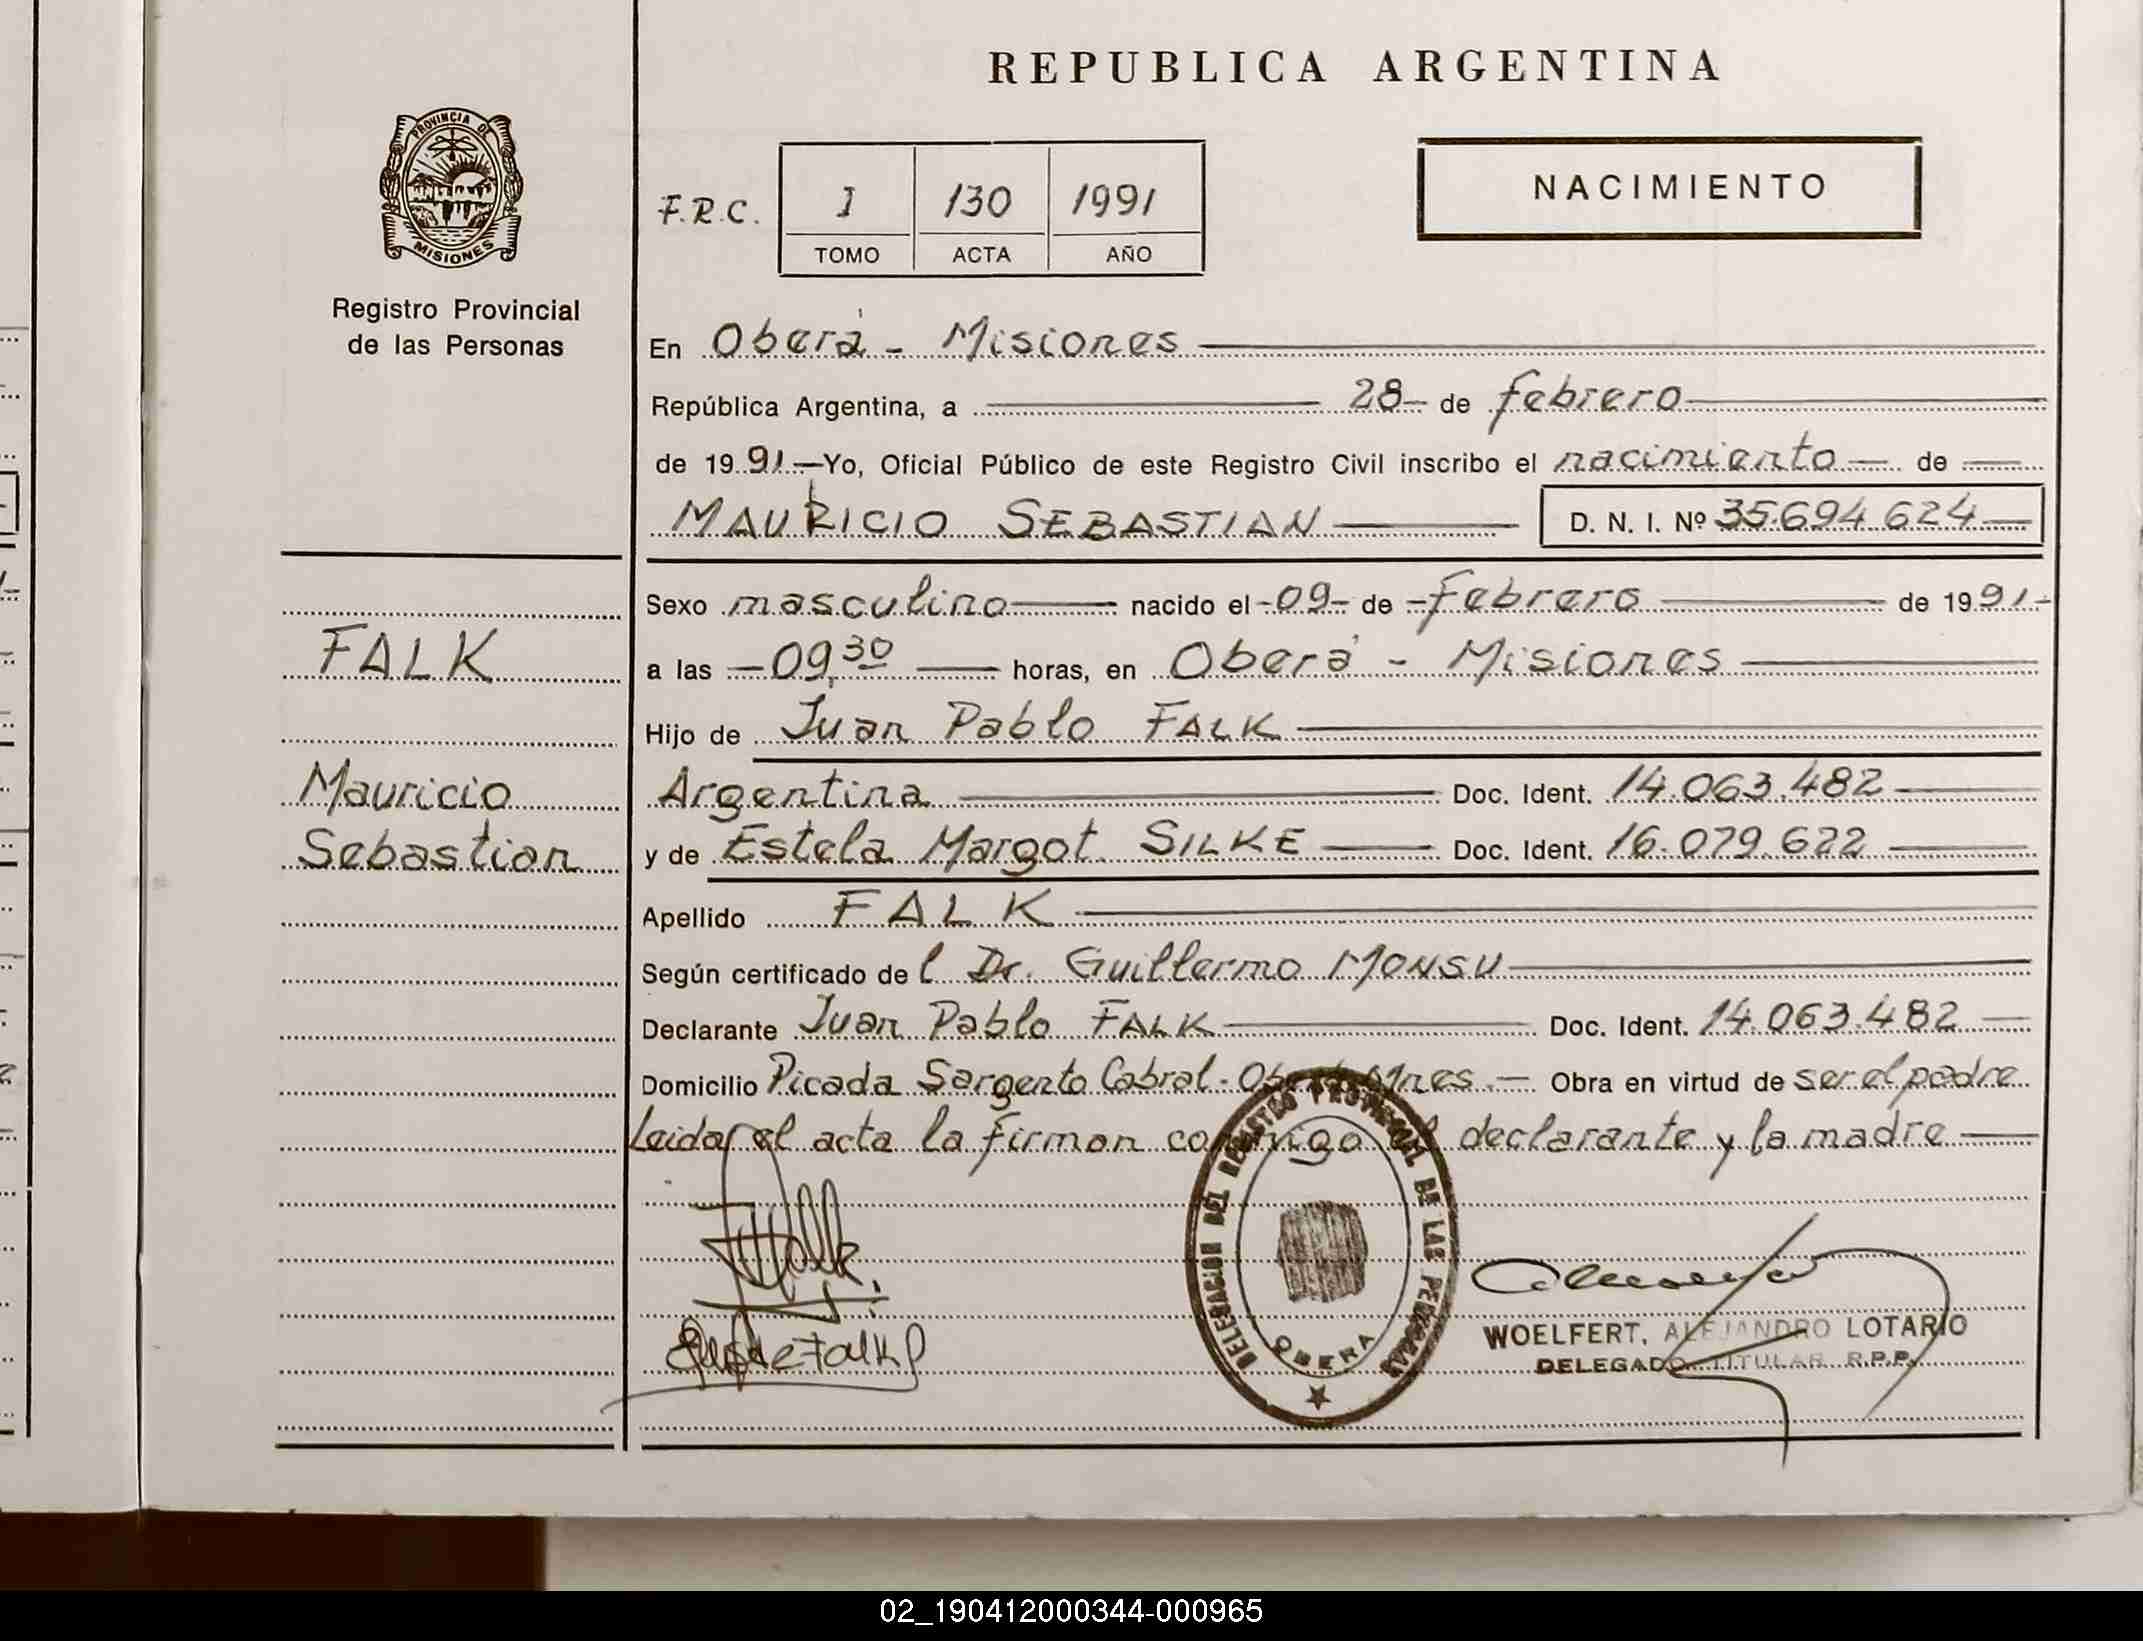 REPUBLICA ARGENTINA
PROVINCIA DE
MISIONES
Registro Provincial
de las Personas
F.R.C.
I 130 1991
TOMO ACTA AÑO
NACIMIENTO
En Oberá - Misiones
República Argentina, a 28 de febrero
de 1991.- Yo, Oficial Público de este Registro Civil inscribo el nacimiento de
MAURICIO SEBASTIAN D. N. I. Nº 35.694.624
Sexo masculino nacido el -09- de -Febrero de 1991-
FALK
a las -09,30 horas, en Oberá - Misiones
Hijo de Juan Pablo FALK
Mauricio
Argentina Doc. Ident. 14.063.482
Sebastian
y de Estela Margot SILKE Doc. Ident. 16.079.622
Apellido FALK
Según certificado del Dr. Guillermo MONSU
Declarante Juan Pablo FALK Doc. Ident. 14.063.482
Domicilio Picada Sargento Cabral - Mnes. Obra en virtud de ser el padre
Leida el acta la firman conmigo el declarante y la madre
DELEGACION DEL REGISTRO PROVINCIAL DE LAS PERSONAS
OBERA
de Falk
WOELFERT, ALEJANDRO LOTARIO
DELEGADO TITULAR R.P.P.
02_190412000344-000965